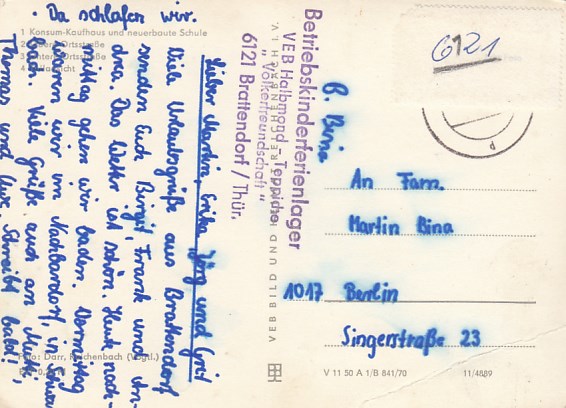 Da schlafen wir.
1 Konsum-Kaufhaus und neuerbaute Schule
Ortsstraße
Ortsstraße
Lieber Martin, Erika, Jörg und
Viele Urlaubsgrüße aus Brattendorf
senden Euch Birgit, Frank und
Das Wetter ist schön. Heute nach-
mittag gehen wir baden. Vormittag
waren wir im Nachbardorf, in
Viele Grüße auch an
Thomas und Schreibt bald!
Foto: Darr, Reichenbach (Vogtl.)
Betriebskinderferienlager
VEB Halbmond-Teppiche
"Völkerfreundschaft"
6121 Brattendorf / Thür.
VEB BILD UND HEIMAT REICHENBACH
B. Bina
6121
An Fam.
Martin Bina
1017 Berlin
Singerstraße 23
V 11 50 A 1/B 841/70
11/4889